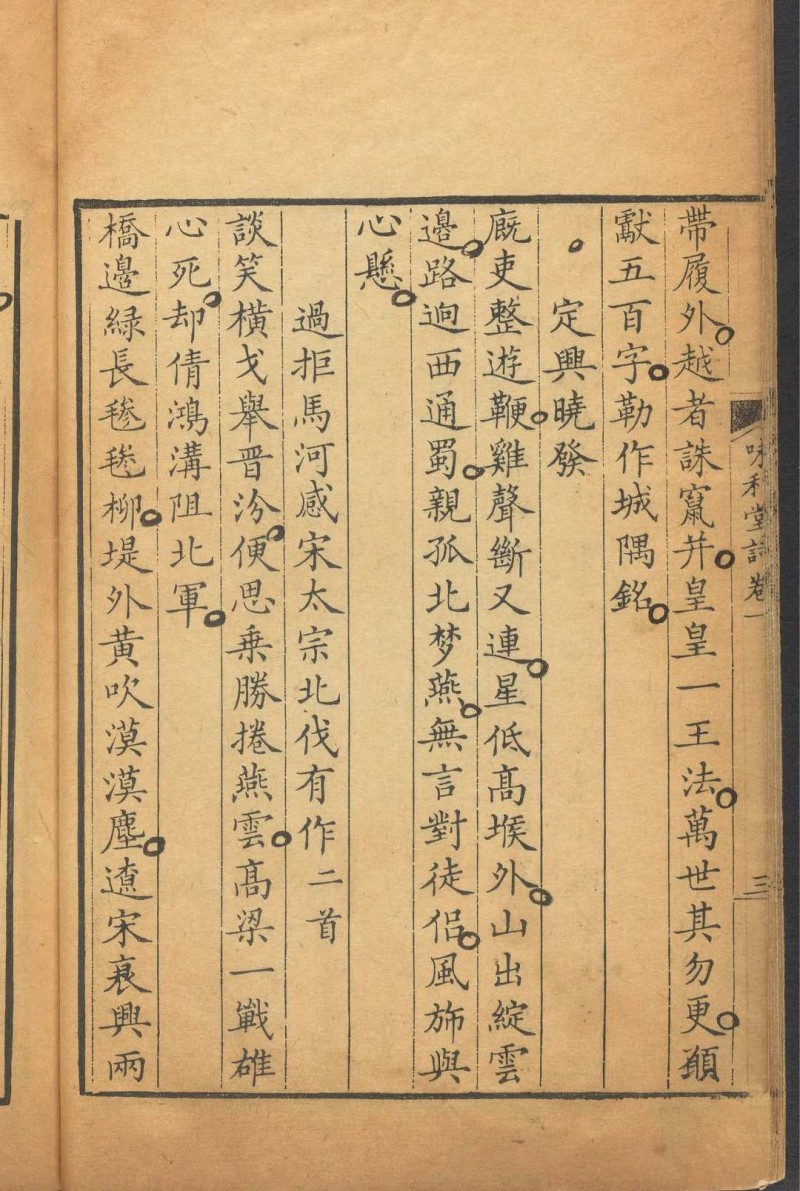 味和堂詩卷一
三
帶履外越者誅竄并皇皇一王法萬世其勿更願
獻五百字勒作城隅銘
定興曉發
厩吏整遊鞭雞聲斷又連星低高堠外山出綻雲
邊路迥西通蜀親孤北梦燕無言對徒侶風斾與
心懸
過拒馬河感宋太宗北伐有作二首
談笑橫戈舉晋汾便思乗勝捲燕雲高梁一戰雄
心死却倩鴻溝阻北軍
橋邊緑長毵毵柳堤外黄吹漠漠塵遼宋衰興兩